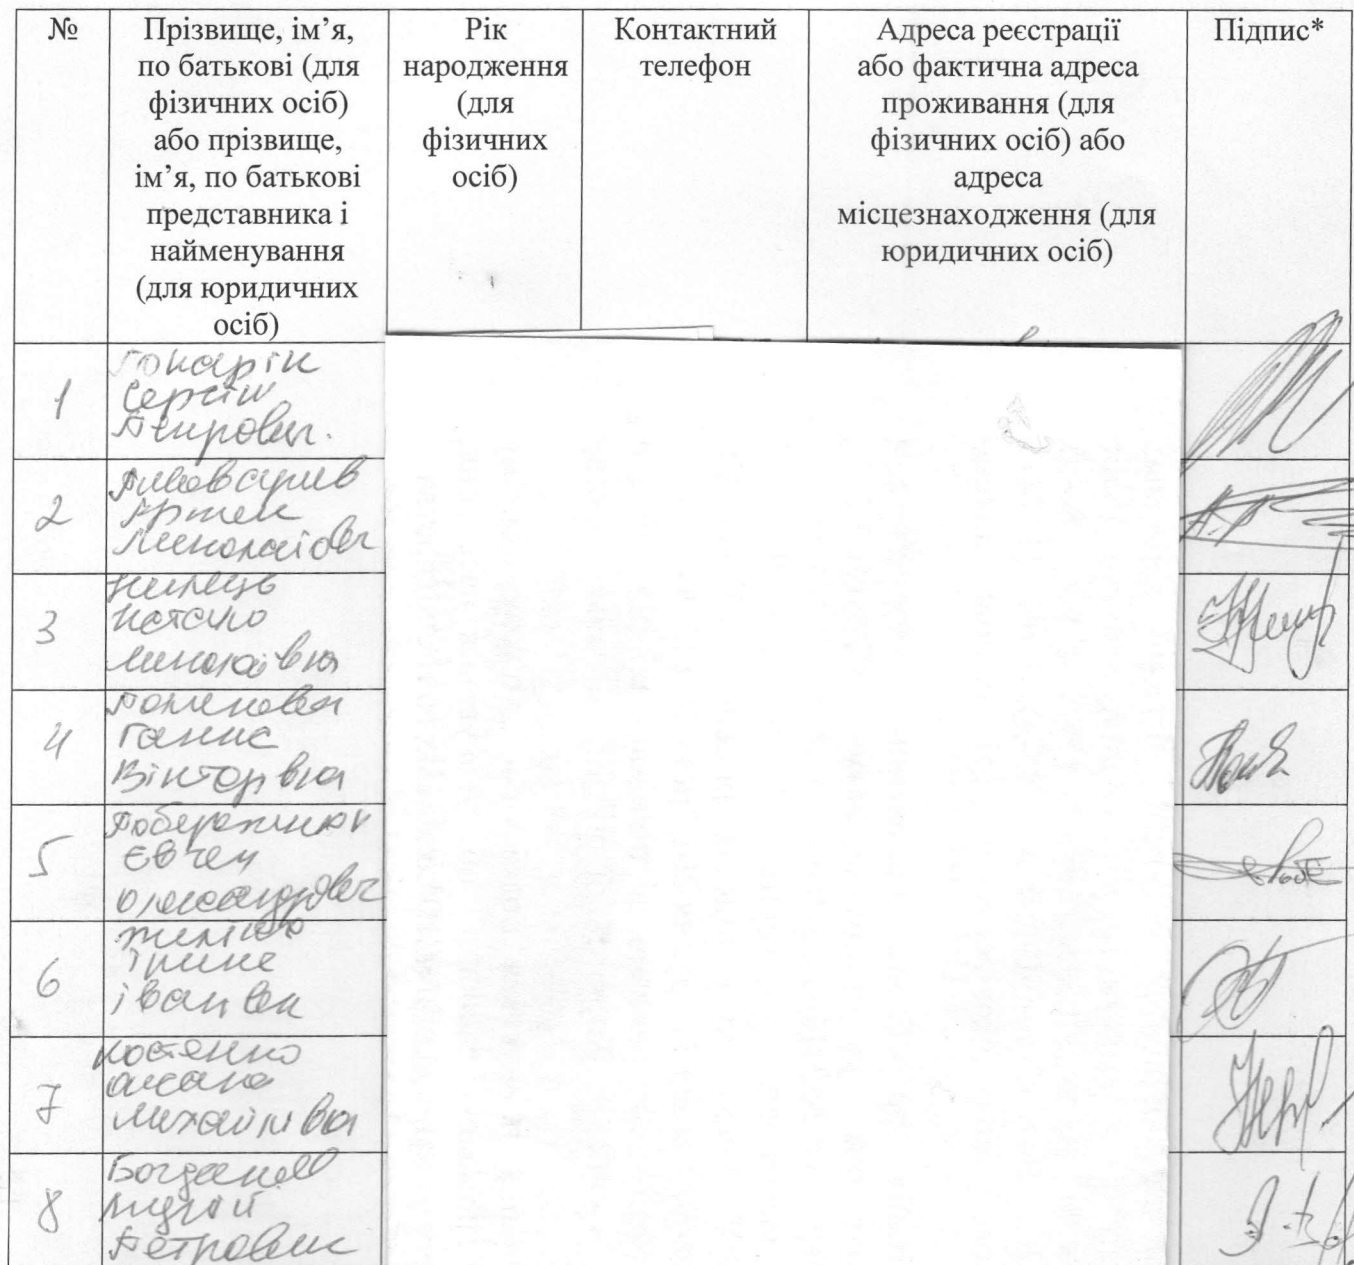 №
Прізвище, ім’я,
по батькові (для
фізичних осіб)
або прізвище,
ім’я, по батькові
представника і
найменування
(для юридичних
осіб)
Рік
народження
(для
фізичних
осіб)
Контактний
телефон
Адреса реєстрації
або фактична адреса
проживання (для
фізичних осіб) або
адреса
місцезнаходження (для
юридичних осіб)
Підпис*
1
Сергій
Петрович
2
Артем
Миколайович
3
Наталя
Миколаївна
4
Ганна
Вікторівна
5
Євген
Олександрович
6
Ірина
Іванівна
7
Костенко
Оксана
Михайлівна
8
Богданов
Андрій
Петрович